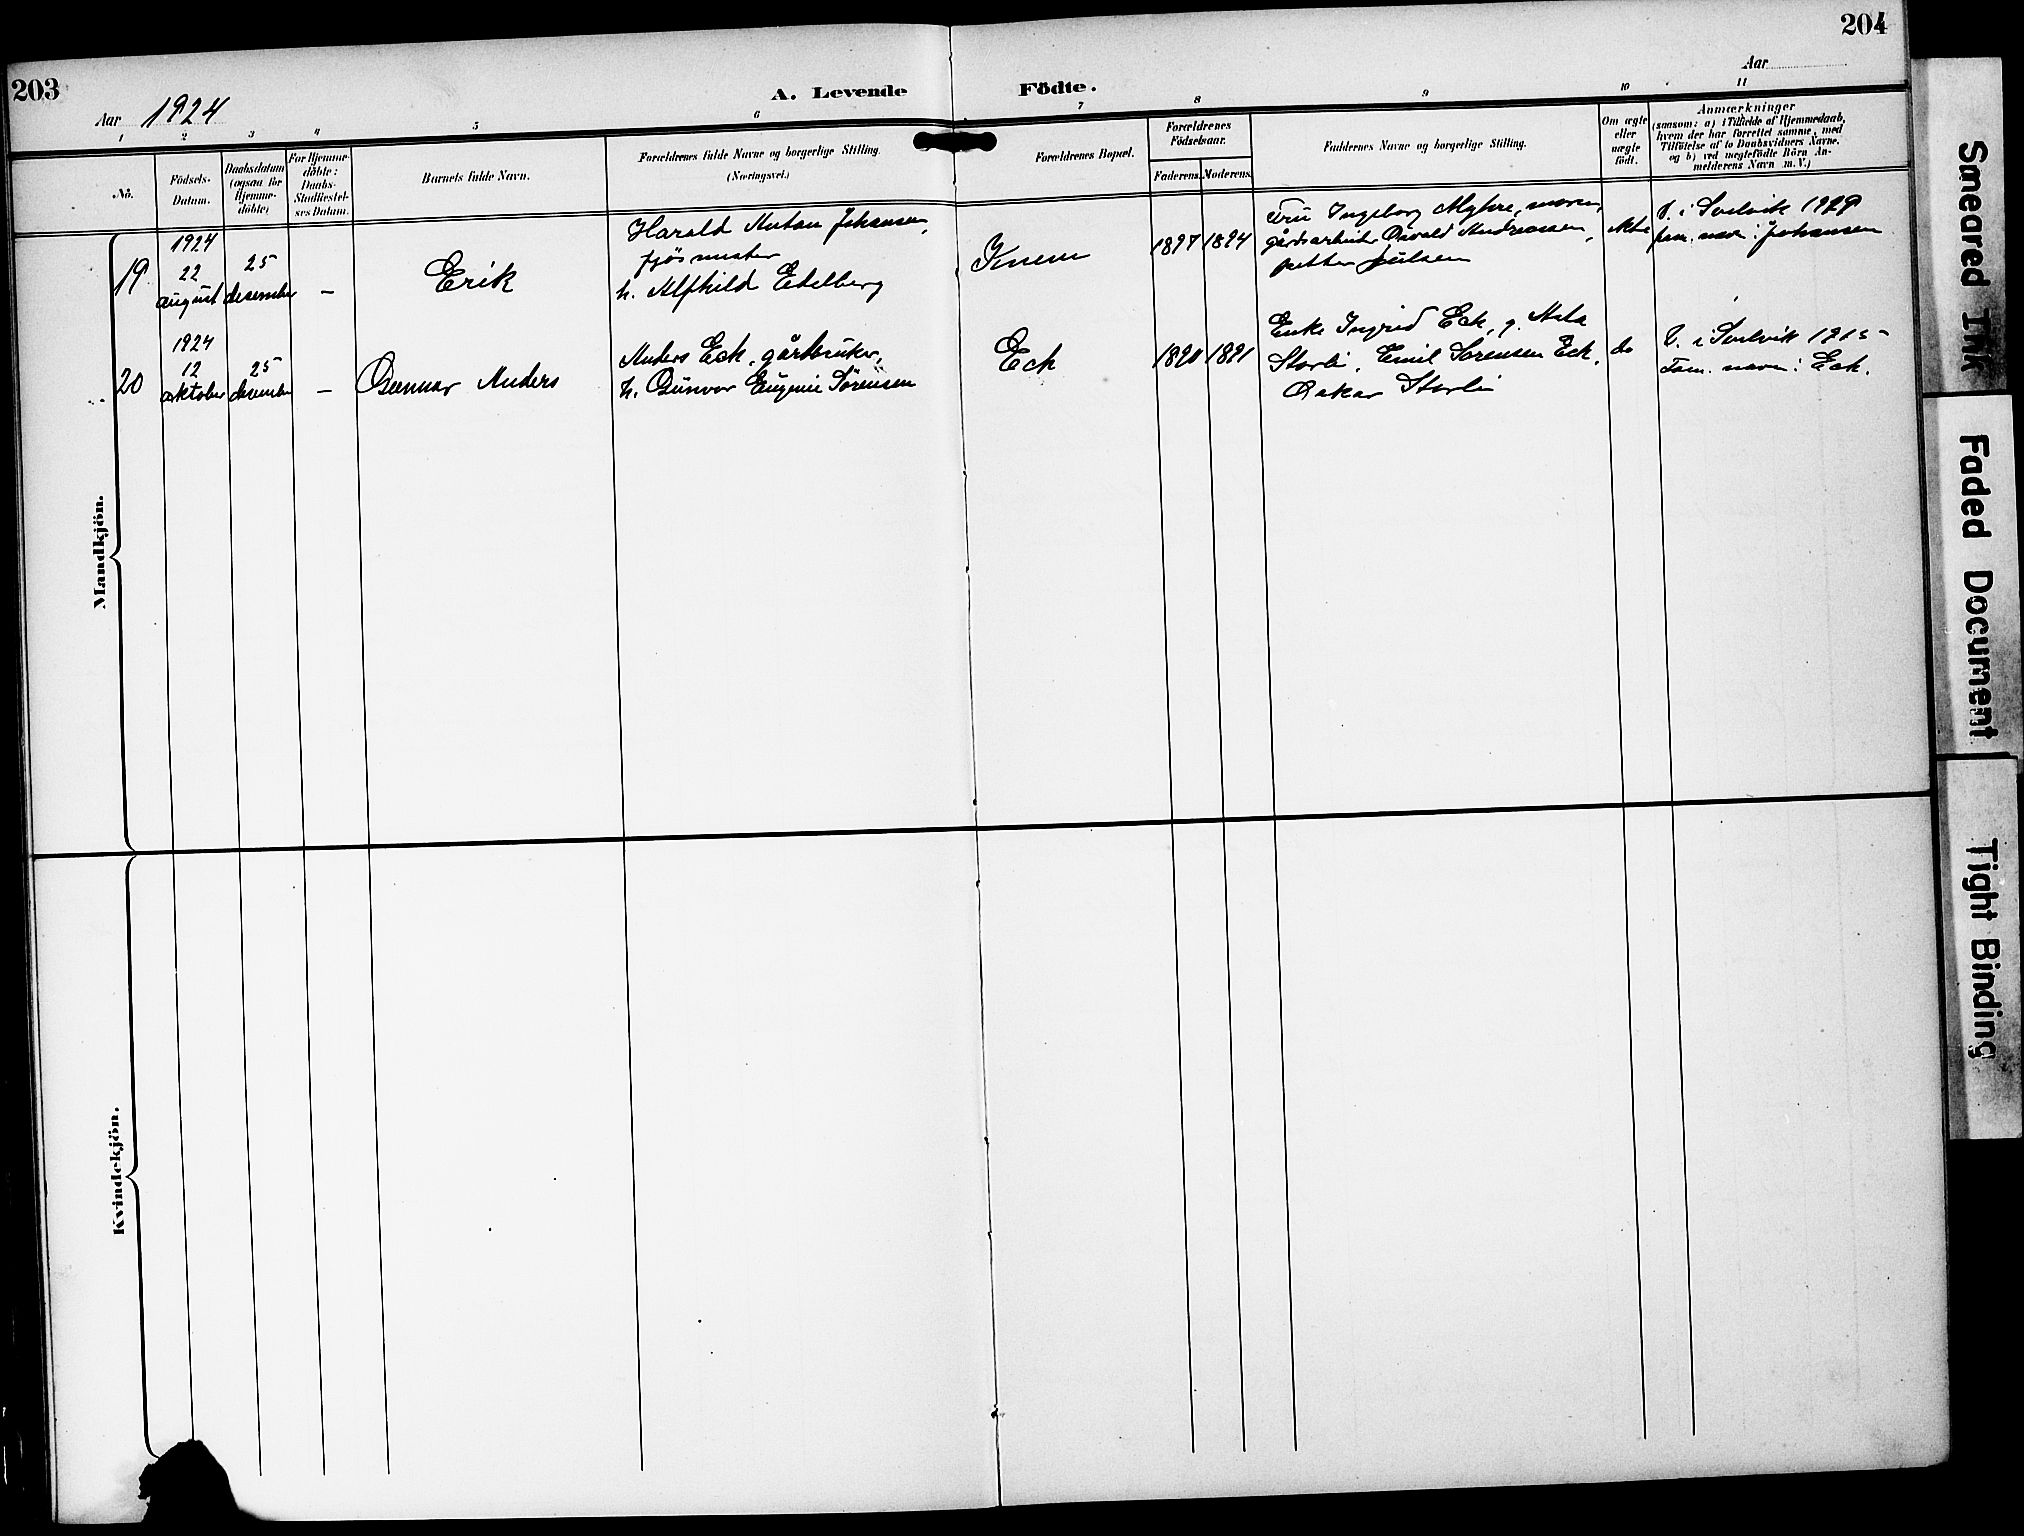 203
204
Aar 1924
A. Levende Födte.
Aar
1
2
3
4
5
6
7
8
9
10
11
No.
Födsels-
Datum.
Daabsdatum
(ogsaa for
Hjemme-
döbte)
For Hjemme-
döbte:
Daabs-
Stadfæstel-
ses Datum.
Barnets fulde Navn.
Forældrenes fulde Navne og borgerlige Stilling.
(Næringsvei.)
Forældrenes Bopæl.
Forældrenes
Födselsaar.
Faderens.
Moderens.
Faddernes Navne og borgerlige Stilling.
Om ægte
eller
uægte
födt.
Anmærkninger
(saasom: a) i Tilfælde af Hjemmedaab,
hvem der har forrettet samme, med
Tilföielse af to Daabsvidners Navne,
og b) ved uægtefödte Börn An-
melderens Navn m. V.)
Mandkjön.
19
1924
22
august
25
desember
–
Erik
Harald Anton Johansen,
fjösmester
h. Alfhild Edelberg
Knem
1897
1894
Fru Ingeborg Myhre, moren,
gårdsarbeider Osvald Andreassen,
petter Julsen
ekte
V. i Svelvik 1929
fam. navn: Johansen
20
1924
12
oktober
25
desember
–
Gunnar Anders
Anders Eck, gårdbruker,
h. Gunvor Eugenie Sørensen
Eck
1890
1891
Enke Ingrid Eck, g. Asta
Storli, Emil Sorensen Eck,
Oskar Storli
do
V. i Svelvik 1915
Fam. navn: Eck.
Kvindekjön.
Smeared Ink
Faded Document
Tight Binding